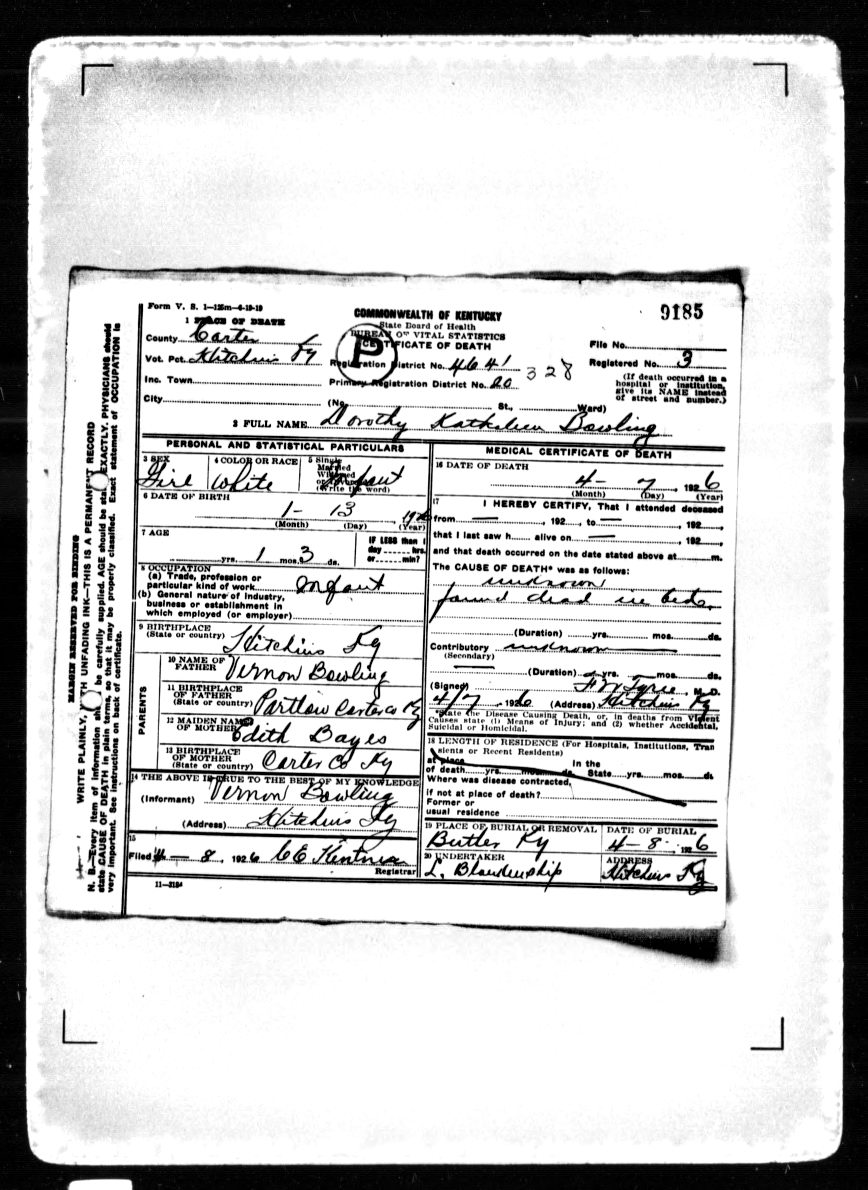 Form V. S. 1—125m—6-19-19
COMMONWEALTH OF KENTUCKY
State Board of Health
BUREAU OF VITAL STATISTICS
CERTIFICATE OF DEATH
9185
P
1 PLACE OF DEATH
County Carter
Vot. Pct. Hitchins Ky
Inc. Town
City
Registration District No. 4641
328
Primary Registration District No. 20
(No. St., Ward)
File No.
Registered No. 3
(If death occurred in a
hospital or institution,
give its NAME instead
of street and number.)
2 FULL NAME Dorothy Kathaleen Bowling
PERSONAL AND STATISTICAL PARTICULARS
3 SEX
Girl
4 COLOR OR RACE
White
5 Single
Married
Widowed
or Divorced
(Write the word)
Infant
6 DATE OF BIRTH
1- 13 1926
(Month) (Day) (Year)
7 AGE
yrs. 1 mos. 3 ds.
IF LESS than 1
day hrs.
or min?
8 OCCUPATION
(a) Trade, profession or
particular kind of work Infant
(b) General nature of industry,
business or establishment in
which employed (or employer)
9 BIRTHPLACE
(State or country) Hitchins Ky
PARENTS
10 NAME OF
FATHER Vernon Bowling
11 BIRTHPLACE
OF FATHER
(State or country) Partlow Carter Co Ky
12 MAIDEN NAME
OF MOTHER Edith Bayes
13 BIRTHPLACE
OF MOTHER
(State or country) Carter Co Ky
14 THE ABOVE IS TRUE TO THE BEST OF MY KNOWLEDGE
(Informant) Vernon Bowling
(Address) Hitchins Ky
15
Filed 4-8, 1926 CE
Registrar
11—3184
MEDICAL CERTIFICATE OF DEATH
16 DATE OF DEATH
4- 7, 1926
(Month) (Day) (Year)
17
I HEREBY CERTIFY, That I attended deceased
from —, 192, to —, 192,
that I last saw h alive on —, 192,
and that death occurred on the date stated above at m.
The CAUSE OF DEATH* was as follows:
unknown
found dead in bed.
(Duration) yrs. mos. ds.
Contributory unknown
(Secondary)
(Duration) yrs. mos. ds.
(Signed) , M. D.
4/7, 1926 (Address) Hitchins Ky
*State the Disease Causing Death, or, in deaths from Violent
Causes state (1) Means of Injury; and (2) whether Accidental,
Suicidal or Homicidal.
18 LENGTH OF RESIDENCE (For Hospitals, Institutions, Tran
sients or Recent Residents)
at place In the
of death yrs. mos. ds. State yrs. mos. ds
Where was disease contracted,
if not at place of death?
Former or
usual residence
19 PLACE OF BURIAL OR REMOVAL
Butler Ky
DATE OF BURIAL
4-8- 1926
20 UNDERTAKER
L. Blankenship
ADDRESS
Hitchins Ky
MARGIN RESERVED FOR BINDING
WRITE PLAINLY, WITH UNFADING INK—THIS IS A PERMANENT RECORD
N. B.—Every item of information should be carefully supplied. AGE should be stated EXACTLY. PHYSICIANS should
state CAUSE OF DEATH in plain terms, so that it may be properly classified. Exact statement of OCCUPATION is
very important. See instructions on back of certificate.